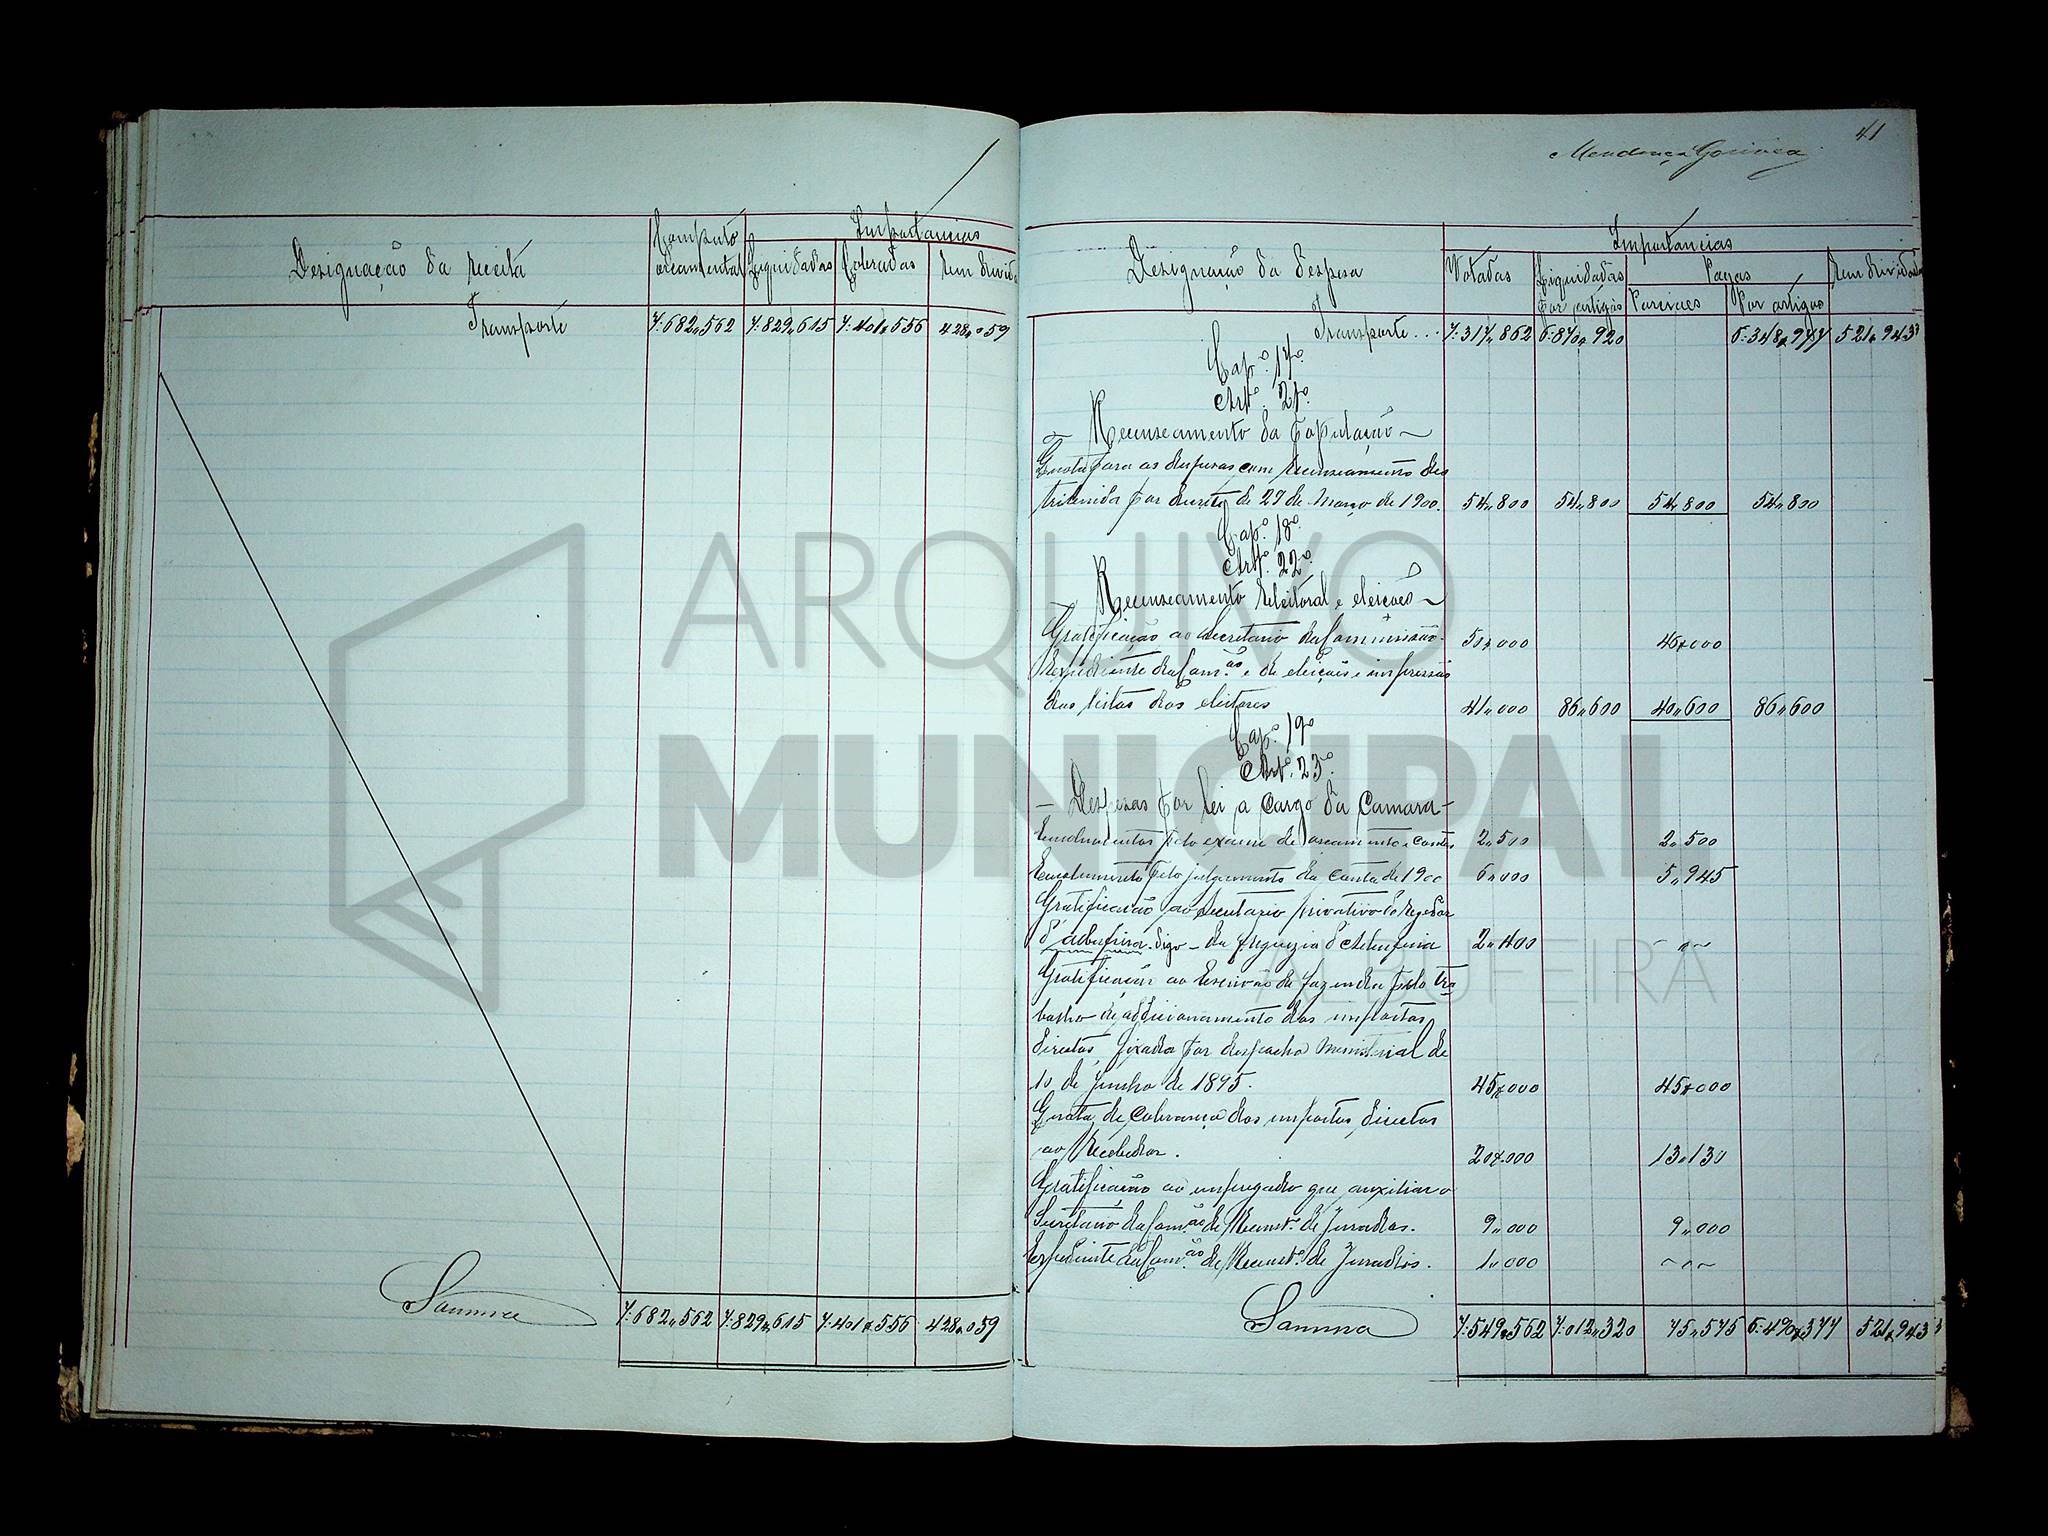 Designação da receita
Computo orçamental
Importancias
Liquidadas
Cobradas
Em divida
Transporte 7:682,,562 7:829,,615 7:401,,556 428,,059
Somma 7:682,,562 7:829,,615 7:401,,556 428,,059
41
Mendonça Gouvea
Designação da despesa
Importancias
Votadas
Liquidadas por artigos
Pagas
Parciaes
Por artigos
Em divida
Transporte... 7:317,,862 6:870,,920 6:348,,977 521,,943
Cap.º 17º
Art.º 21º
Recenseamento da População
Quota para as despesas com recenseamento des
tribuida por decreto de 27 de março de 1900. 54,,800 54,,800 54,,800 54,,800
Cap.º 18º
Art.º 22º
Recenseamento eleitoral e eleições
Gratificação ao Secretario da Commissão 50,,000 46,,000
Expediente da Com.ão e de eleições e impressão
das listas dos eleitores 41,,000 86,,600 40,,600 86,,600
Cap.º 19º
Art.º 23º
Despezas por lei a cargo da Camara
Emolumentos pelo exame de orçamento e contas 2,,500 2,,500
Emolumento pelo julgamento da conta de 1900 6,,000 5,,945
Gratificação ao Secretario privativo do Regedor
d'Albufeira digo - da freguezia d'Albufeira 2,,400 - " -
Gratificação ao Escrivão de fazenda pelo tra
balho de addicionamento dos impostos
directos, fixada por despacho ministerial de
10 de Junho de 1895. 45,,000 45,,000
Quota de cobrança dos impostos directos
ao Recebedor. 20,,000 13,,130
Gratificação ao empregado que auxiliar o
Secretario da Com.ão de Recenst.º de Jurados. 9,,000 9,,000
Expediente da Com.ão de Recenst.º de Jurados. 1,,000 - " -
Somma 7:549,,562 7:012,,320 75,,575 6:490,,377 521,,943
ARQUIVO
MUNICIPAL
ALBUFEIRA